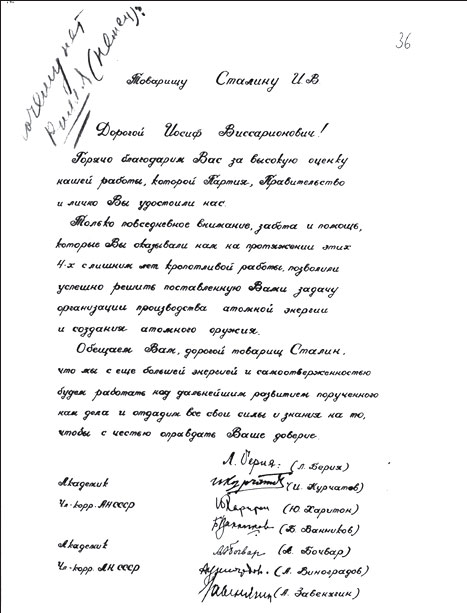 почему нет
Риля (немец)?
36
Товарищу Сталину И В
Дорогой Иосиф Виссарионович!
Горячо благодарим Вас за высокую оценку
нашей работы, которой Партия, Правительство
и лично Вы удостоили нас.
Только повседневное внимание, забота и помощь,
которые Вы оказывали нам на протяжении этих
4-х с лишним лет кропотливой работы, позволили
успешно решить поставленную Вами задачу
организации производства атомной энергии
и создания атомного оружия.
Обещаем Вам, дорогой товарищ Сталин,
что мы с еще большей энергией и самоотверженностью
будем работать над дальнейшим развитием порученного
нам дела и отдадим все свои силы и знания на то,
чтобы с честью оправдать Ваше доверие.
Л. Берия: (Л. Берия)
Академик ИКурчатов (И. Курчатов)
Чл-корр. АН СССР ЮХаритон (Ю Харитон)
БВанников (Б Ванников)
Академик АБочвар (А. Бочвар)
Чл-корр. АН СССР АВиноградов. (А. Виноградов)
Завенягин (А Завенягин)